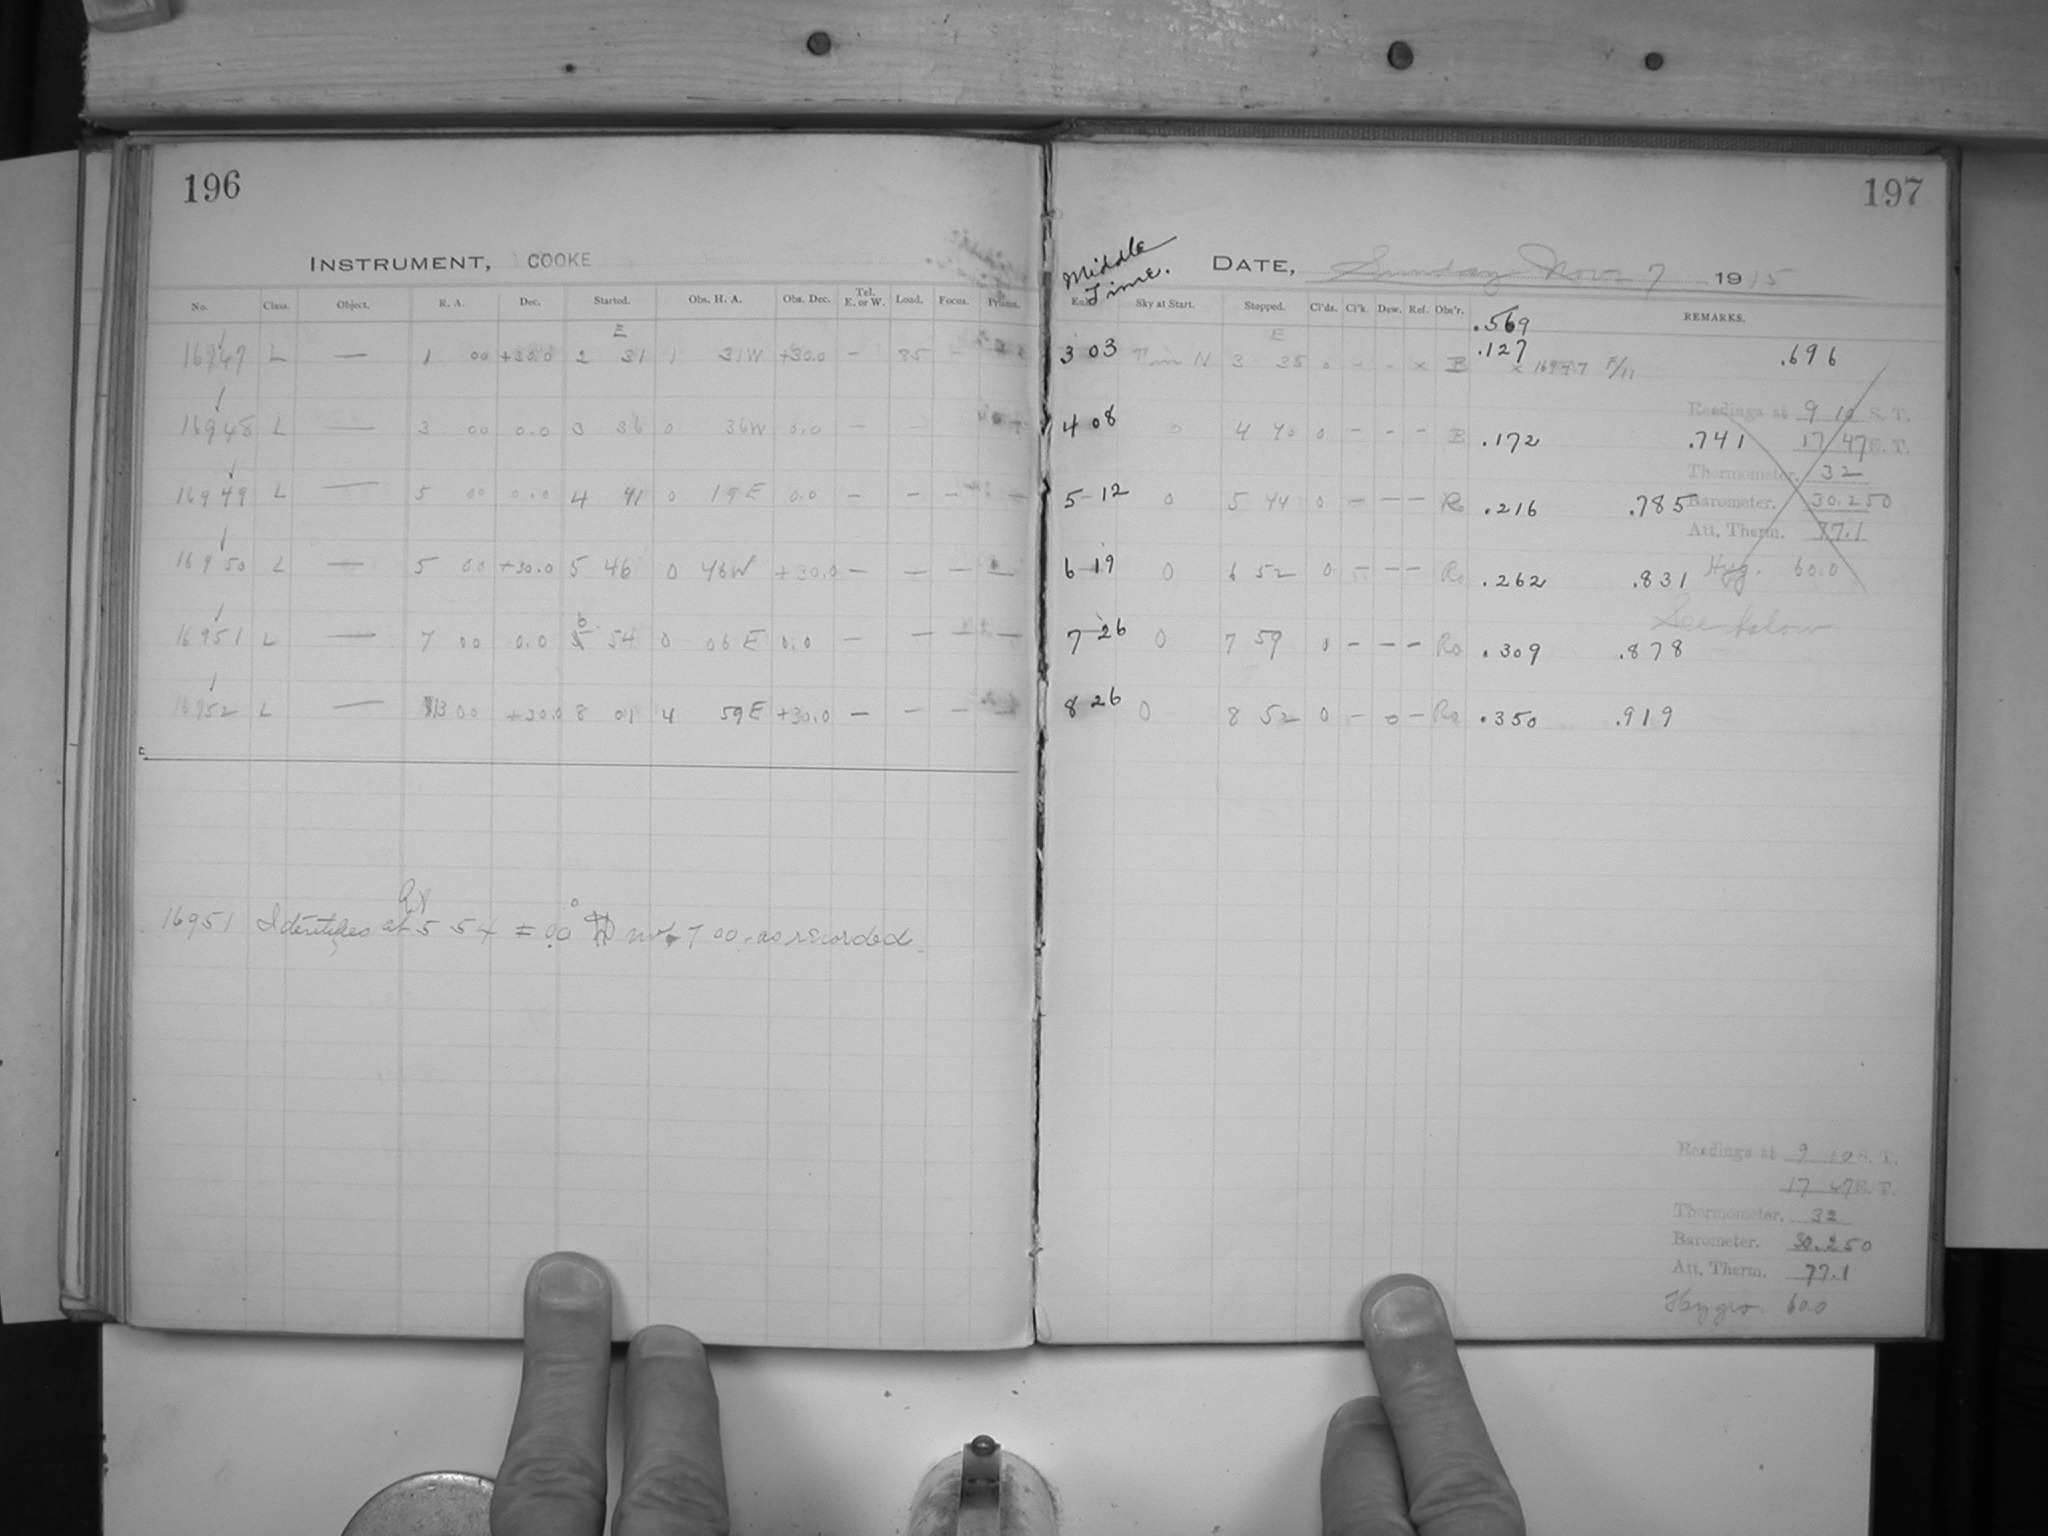 196
INSTRUMENT, COOKE
No. Class. Object. R. A. Dec. Started. Obs. H. A. Obs. Dec. Tel. E. or W. Load. Focus. Prisms.
E
16947 L — 1 00 +30.0 2 31 1 31W +30.0 — 85
16948 L — 3 00 0.0 3 36 0 36W 0.0 —
16949 L — 5 00 0.0 4 41 0 19E 0.0 — — — —
16950 L — 5 00 +30.0 5 46 0 46W +30.0 — — — —
16951 L — 7 00 0.0 6 54 0 06E 0.0 — — — —
16952 L — 13 00 +30.0 8 01 4 59E +30.0 — — — —
16951 Identifies at 5 54 ± 00° not 7 00 as recorded.
197
Middle Time.
DATE, Sunday Nov 7 1915
Sky at Start. Stopped. Cl'ds. Cl'k. Dew. Ref. Obs'r. REMARKS.
E .569
3 03 N 3 35 0 - - x B .127 x 16947 F/11 .696
4 08 0 4 40 0 - - - B .172 .741
5 12 0 5 44 0 - - - Ro .216 .785
6 19 0 6 52 0 - - - Ro .262 .831
7 26 0 7 59 0 - - - Ro .309 .878
8 26 0 8 52 0 - 0 - Ro .350 .919
Readings at 9 10 S. T.
17 47 E. T.
Thermometer. 32
Barometer. 30.250
Att. Therm. 77.1
Hyg. 60.0
See below
Readings at 9 10 S. T.
17 47 E. T.
Thermometer. 32
Barometer. 30.250
Att. Therm. 77.1
Hygro. 60.0